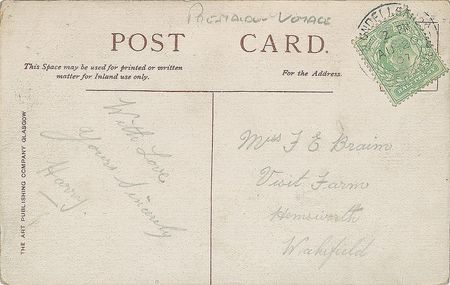 PREMAIDEN VOYAGE
POST CARD.
This Space may be used for printed or written
matter for Inland use only.
For the Address.
THE ART PUBLISHING COMPANY GLASGOW
With Love
Yours Sincerely
Harry
Miss F E Braim
Visit Farm
Hemsworth
Wakefield